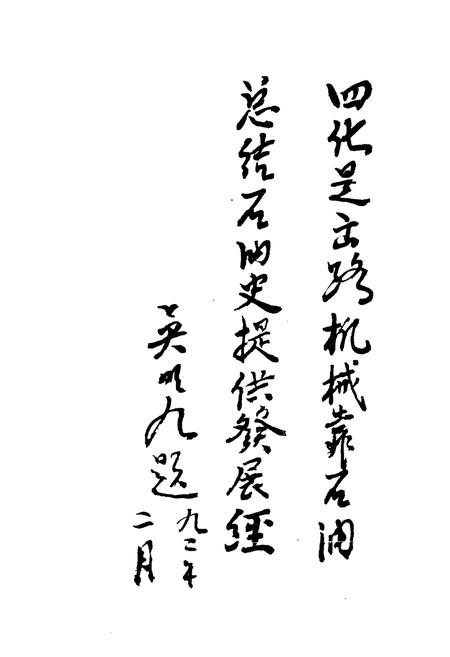 四化是出路机械靠石油
总结石油史提供發展經
英明九题
九二年
二月